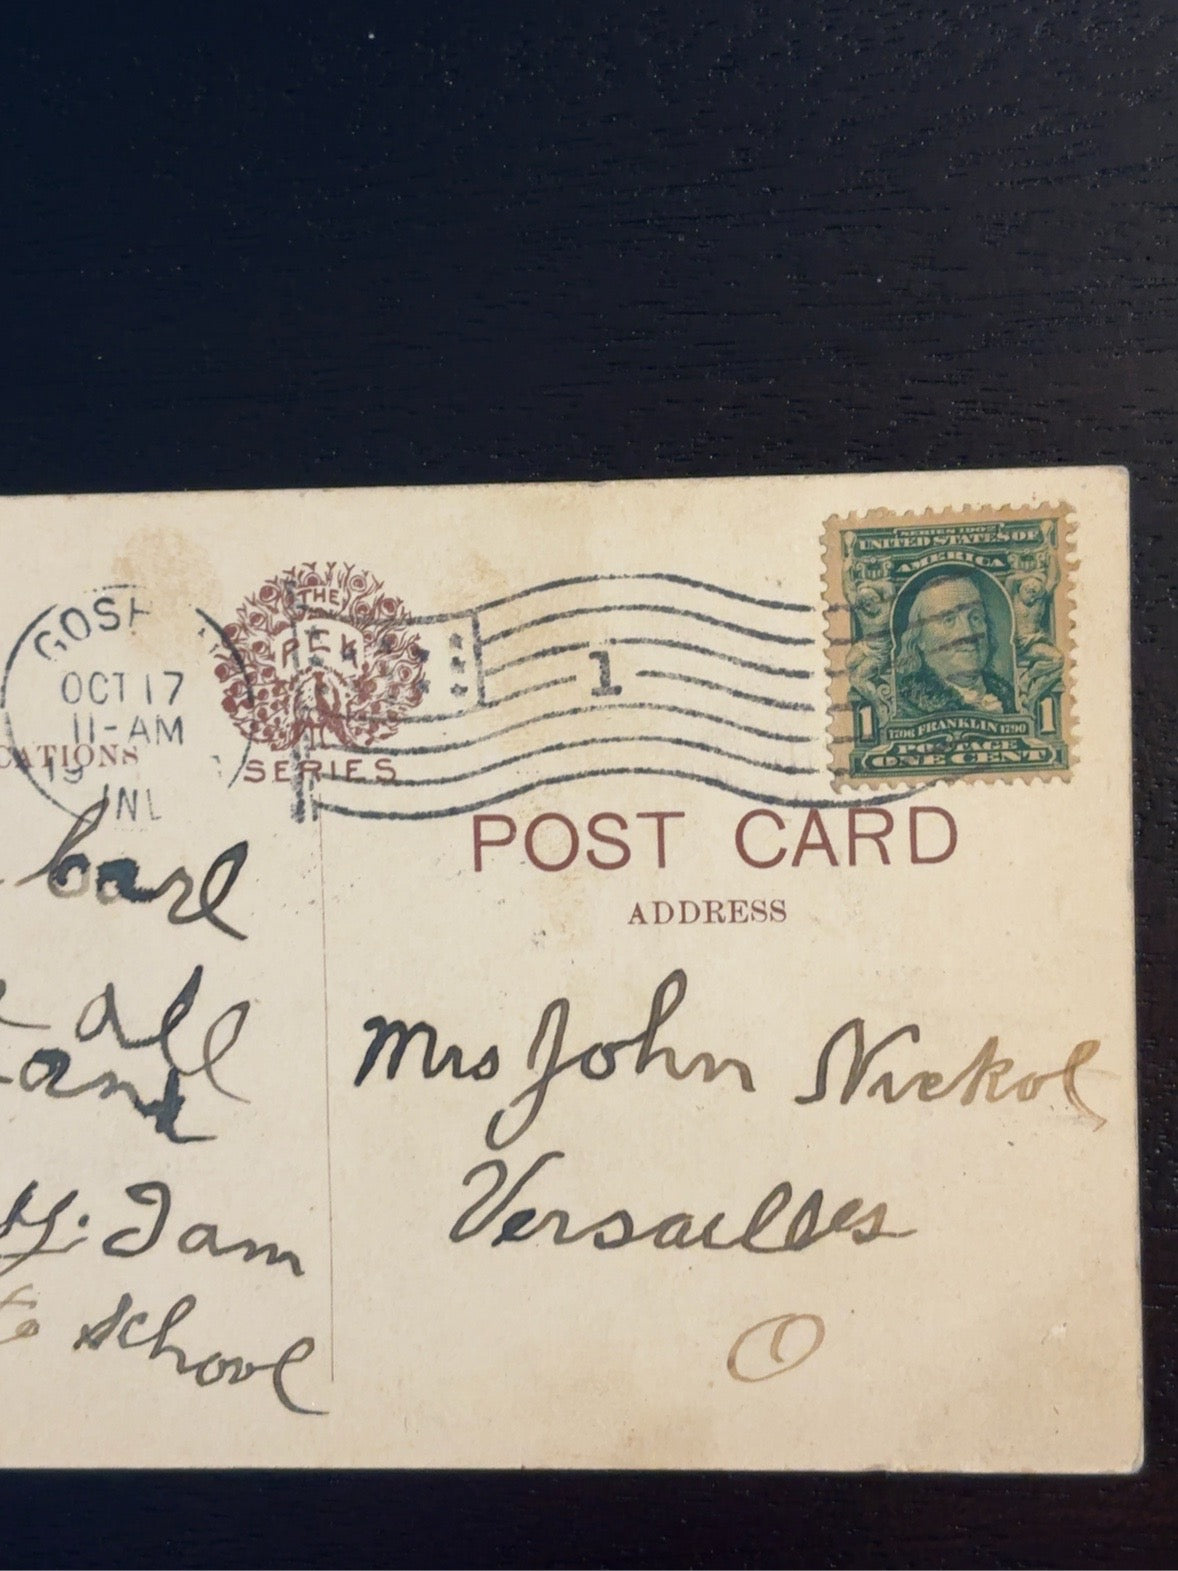 SERIES 1902
UNITED STATES OF
AMERICA
1 1
1706 FRANKLIN 1790
POSTAGE
ONE CENT
GOSH
OCT 17
11-AM
19
IND
1
THE
PCK
SERIES
CATIONS
POST CARD
ADDRESS
carl
all
and
H. I am
to school
Mrs John Nickol
Versailles
O